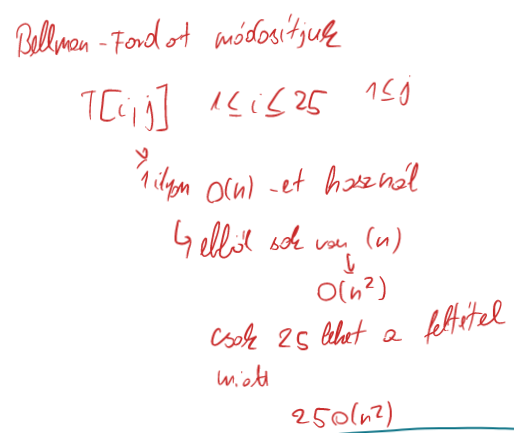 Bellman-Fordot módosítjuk
T[i,j] 1≤i≤25 1≤j
1 ilyen O(n)-et használ
↳ ebből sok van (n)
O(n²)
csak 25 lehet a feltétel
miatt
25O(n²)